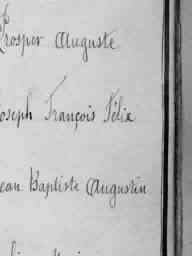 Prosper Auguste
Joseph François Félix
Jean Baptiste Augustin